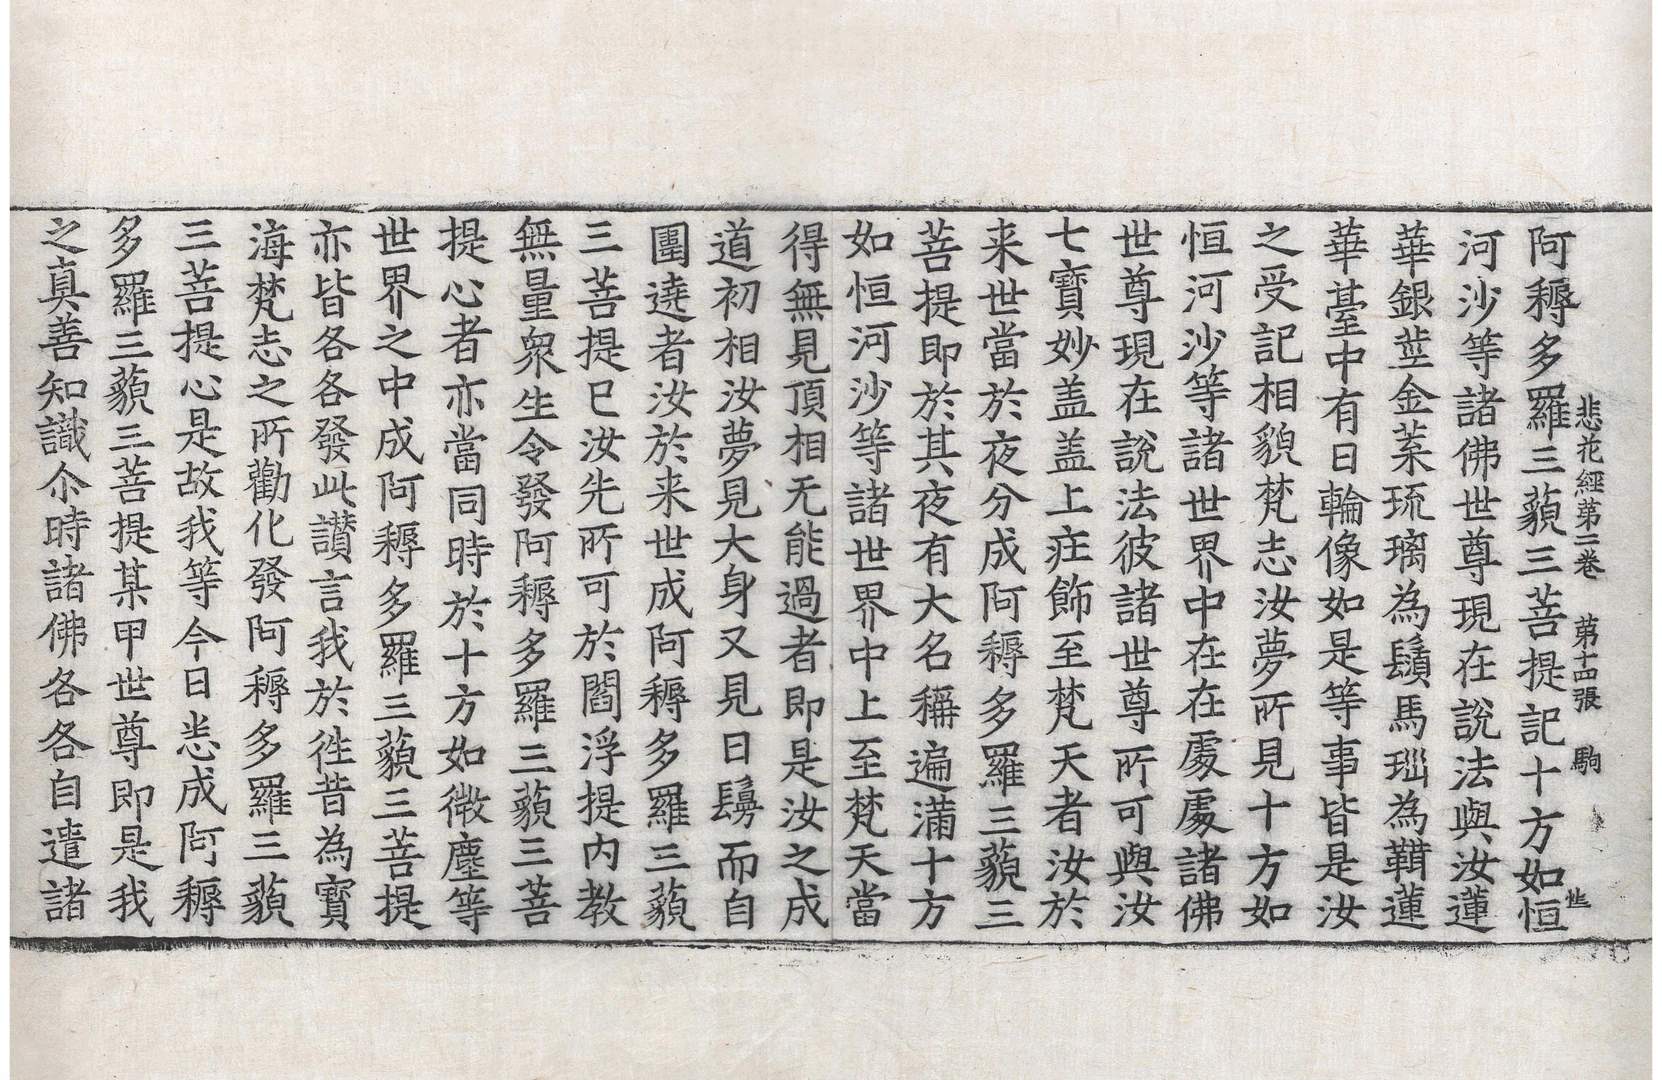 悲花經苐二卷　苐十四張　駒
阿耨多羅三藐三菩提記十方如恒
河沙等諸佛世尊現在說法與汝蓮
華銀莖金葉琉璃為鬚馬瑙為鞊蓮
華臺中有日輪像如是等事皆是汝
之受記相貌梵志汝夢所見十方如
恒河沙等諸世界中在在處處諸佛
世尊現在說法彼諸世尊所可與汝
七寶妙盖盖上疘飾至梵天者汝於
来世當於夜分成阿耨多羅三藐三
菩提即於其夜有大名稱遍滿十方
如恒河沙等諸世界中上至梵天當
得無見頂相无能過者即是汝之成
道初相汝夢見大身又見日鬘而自
圍遶者汝於来世成阿耨多羅三藐
三菩提已汝先所可於閻浮提内教
無量衆生令發阿耨多羅三藐三菩
提心者亦當同時於十方如微塵等
世界之中成阿耨多羅三藐三菩提
亦皆各各發此讚言我於徃昔為寶
海梵志之所勸化發阿耨多羅三藐
三菩提心是故我等今日悉成阿耨
多羅三藐三菩提某甲世尊即是我
之真善知識尒時諸佛各各自遣諸